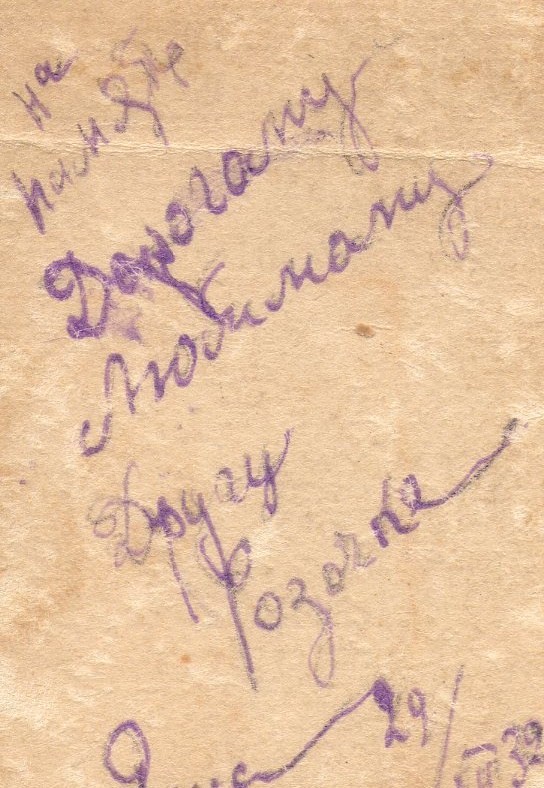 на
память
Дорогаму
Любимаму
Другу
Розочке
29/
32